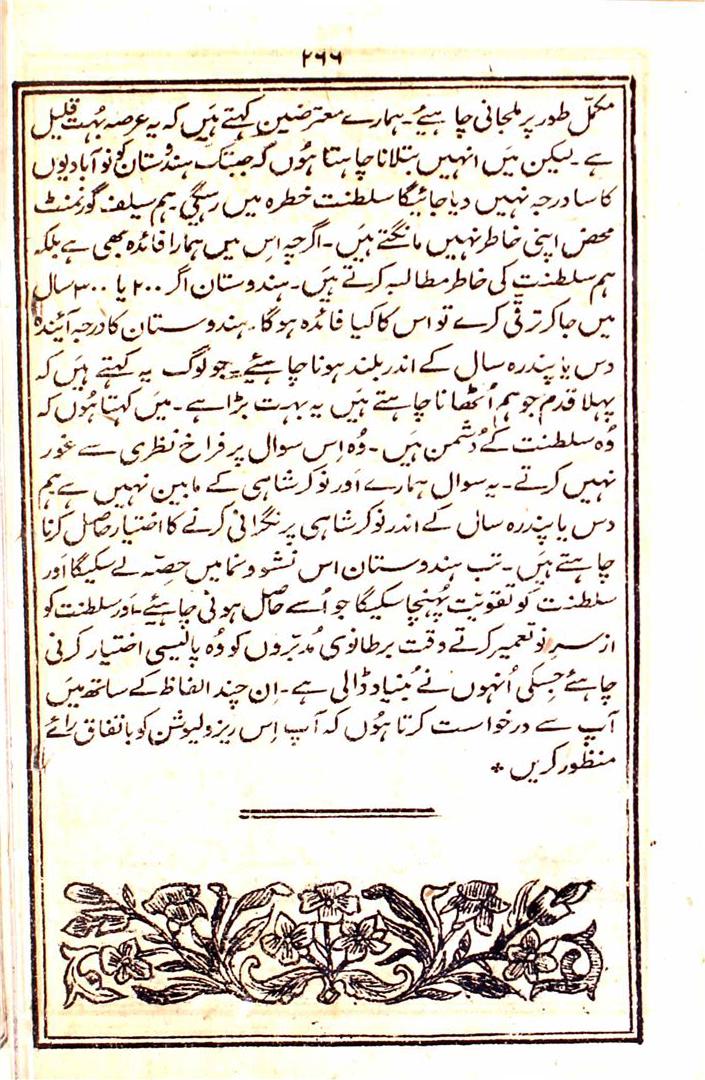 ۲۶۶
مکمّل طور پر ملجانی چاہیئے۔ ہمارے معترضین کہتے ہیں کہ یہ عرصہ بہت قلیل
ہے۔ لیکن میں انہیں بتلانا چاہتا ہوں کہ جبتک ہندوستان کو نو آبادیوں
کا سا درجہ نہیں دیا جائیگا سلطنت خطرہ میں رہیگی۔ ہم سیلف گورنمنٹ
محض اپنی خاطر نہیں مانگتے ہیں۔ اگرچہ اس میں ہمارا فائدہ بھی ہے بلکہ
ہم سلطنت کی خاطر مطالبہ کرتے ہیں۔ ہندوستان اگر ۲۰۰ یا ۳۰۰ سال
میں جا کر ترقی کرے تو اس کا کیا فائدہ ہوگا۔ ہندوستان کا درجہ آیندہ
دس یا پندرہ سال کے اندر بلند ہونا چاہیئے۔ جو لوگ یہ کہتے ہیں کہ
پہلا قدم جو ہم اُٹھانا چاہتے ہیں یہ بہت بڑا ہے۔ میں کہتا ہوں کہ
وُہ سلطنت کے دُشمن ہیں۔ وُہ اِس سوال پر فراخ نظری سے غور
نہیں کرتے۔ یہ سوال ہمارے اَور نوکر شاہی کے مابین نہیں ہے ہم
دس یا پندرہ سال کے اندر نوکر شاہی پر نگرانی کرنے کا اختیار حاصل کرنا
چاہتے ہیں۔ تب ہندوستان اس نشوونما میں حصّہ لے سکیگا اَور
سلطنت کو تقویّت پُہنچا سکیگا جو اُسے حاصل ہونی چاہئے۔ اَور سلطنت کو
از سرِ نو تعمیر کرتے وقت برطانوی مُدبّروں کو وُہ پالیسی اختیار کرنی
چاہئے جِسکی اُنہوں نے بُنیاد ڈالی ہے۔ اِن چند الفاظ کے ساتھ میں
آپ سے درخواست کرتا ہوں کہ آپ اِس ریزولیوشن کو باتفاق رائے
منظور کریں ٭